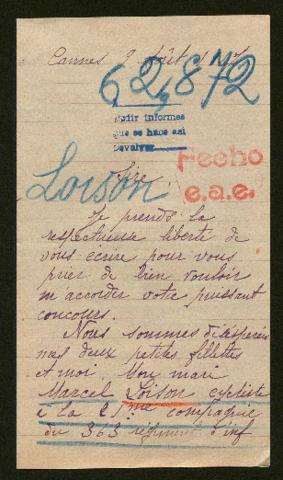 Cannes 2 Août
62,872
Pedir informes
que se hace así
devolver
Fecho
e.a.e.
Sire
Loison
Je prends la
respectueuse liberté de
vous écrire pour vous
prier de bien vouloir
m accorder votre puissant
concours.
Nous sommes désespérées
mes deux petites fillettes
et moi. Mon mari
Marcel Loison cycliste
à la 21me compagnie
du 363 régiment d'inf